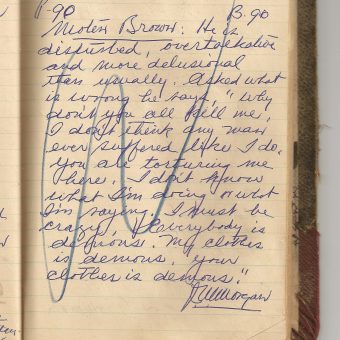 P-90 B.90
Moten Brown: He is
disturbed, overtalkative
and more delusional
than usually. Asked what
is wrong he says, "Why
don't you all kill me,
I don't think any man
ever suffered like I do.
you are torturing me
here. I don't know
what I'm doing or what
I'm saying. I must be
crazy, Everybody is
demons. My clothes
is demons, your
clothes is demons."
Morgan